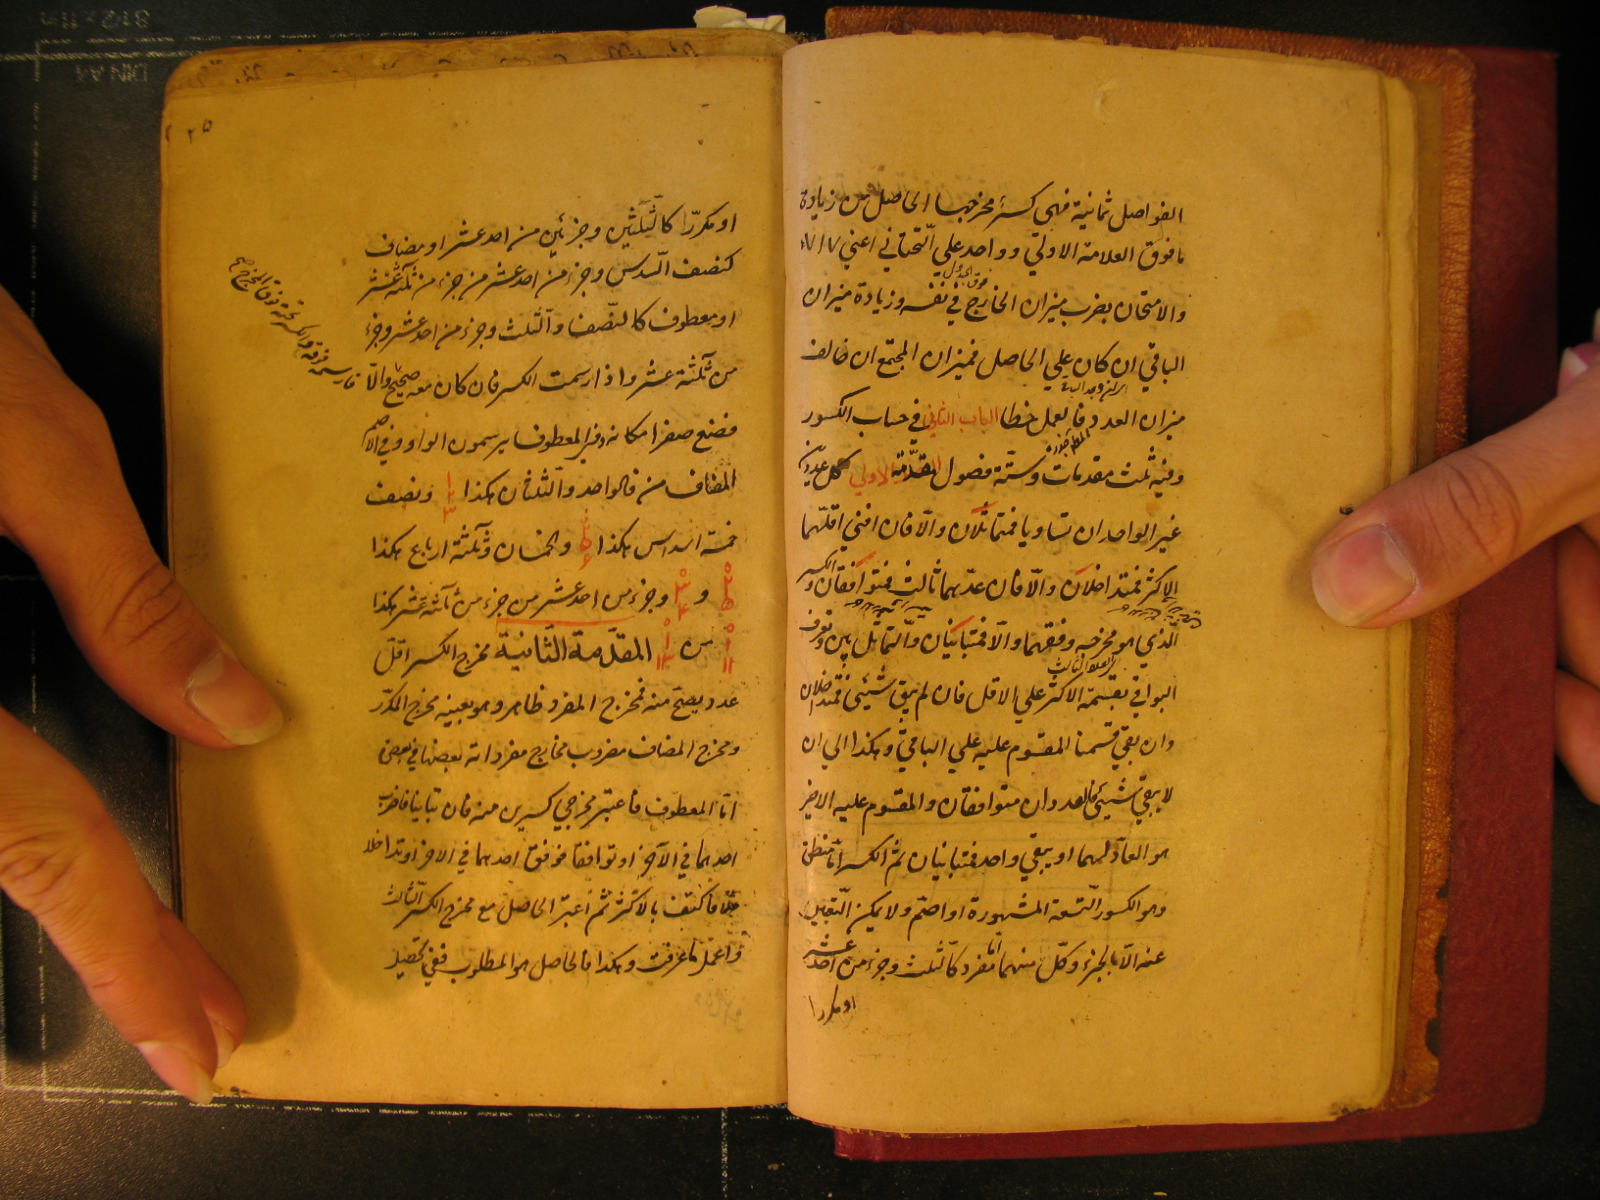 الفواصل ثمانية فهي كسر مخرجها الحاصل من زيادة
ما فوق العلامة الاولي وواحد علي التحتاني اعني ٧١٧
فوق الجدول
والامتحان بضرب ميزان الخارج في نفسه وزيادة ميزان
الباقي ان كان علي الحاصل فميزان المجتمع ان خالف
ميزان العدد فالعمل خطا الباب الثاني في حساب الكسور
وفيه ثلث مقدمات وستة فصول المقدمة الاولي كل عددين
غير الواحد ان تساويا فمتماثلان والا فان افني اقلهما
الاكثر فمتداخلان والا فان عدهما ثالث فمتوافقان والكسر
الذي هو مخرجه وفقهما والا فمتباينان والتماثل بين وتعرف
البواقي بقسمة الاكثر علي الاقل فان لم يبق شيئ فمتداخلان
وان بقي قسمنا المقسوم عليه علي الباقي وهكذا الي ان
لا يبقي شيئ فالعددان متوافقان والمقسوم عليه الاخر
هو العاد لهما او يبقي واحد فمتباينان ثم الكسر اما منطق
وهو الكسور التسعة المشهورة او اصم ولا يمكن التعبير
عنه الا بالجزء وكل منهما اما مفرد كالثلث وجزء من احد عشر
او مكررا
٢٥
او مكررا كالثلثين وجزئين من احد عشر او مضاف
كنصف السدس وجزء من احد عشر من جزء من ثلثة عشر
او معطوف كالنصف والثلث وجزء من احد عشر وجزء
من ثلثة عشر واذا رسمت الكسر فان كان معه صحيح والا
فارسمه فوقه والكسر تحته فوق المخرج صح
فضع صفرا مكانه وفي المعطوف يرسمون الواو وفي الاصم
المضاف من فالواحد والثلثان هكذا ١ ٢ ٣ ونصف
خمسة اسداس هكذا والخمسان وثلثة ارباع هكذا
٠ ٢ ٥ و ٠ ٣ ٤ وجزء من احد عشر من جزء من ثلثة عشر هكذا
٠ ١ ١١ من ٠ ١ ١٣ المقدمة الثانية مخرج الكسر اقل
عدد يصح منه فمخرج المفرد ظاهر وهو بعينه مخرج المكرر
ومخرج المضاف مضروب مخارج مفرداته بعضها في بعض
اما المعطوف فاعتبر مخرجي كسرين منه فان تباينا فاضرب
احدهما في الآخر او توافقا فوفق احدهما في الاخر او تداخلا
فاكتف بالاكثر ثم اعتبر الحاصل مع مخرج الكسر الثالث
واعمل كما عرفت وهكذا فالحاصل هو المطلوب ففي تحصيل